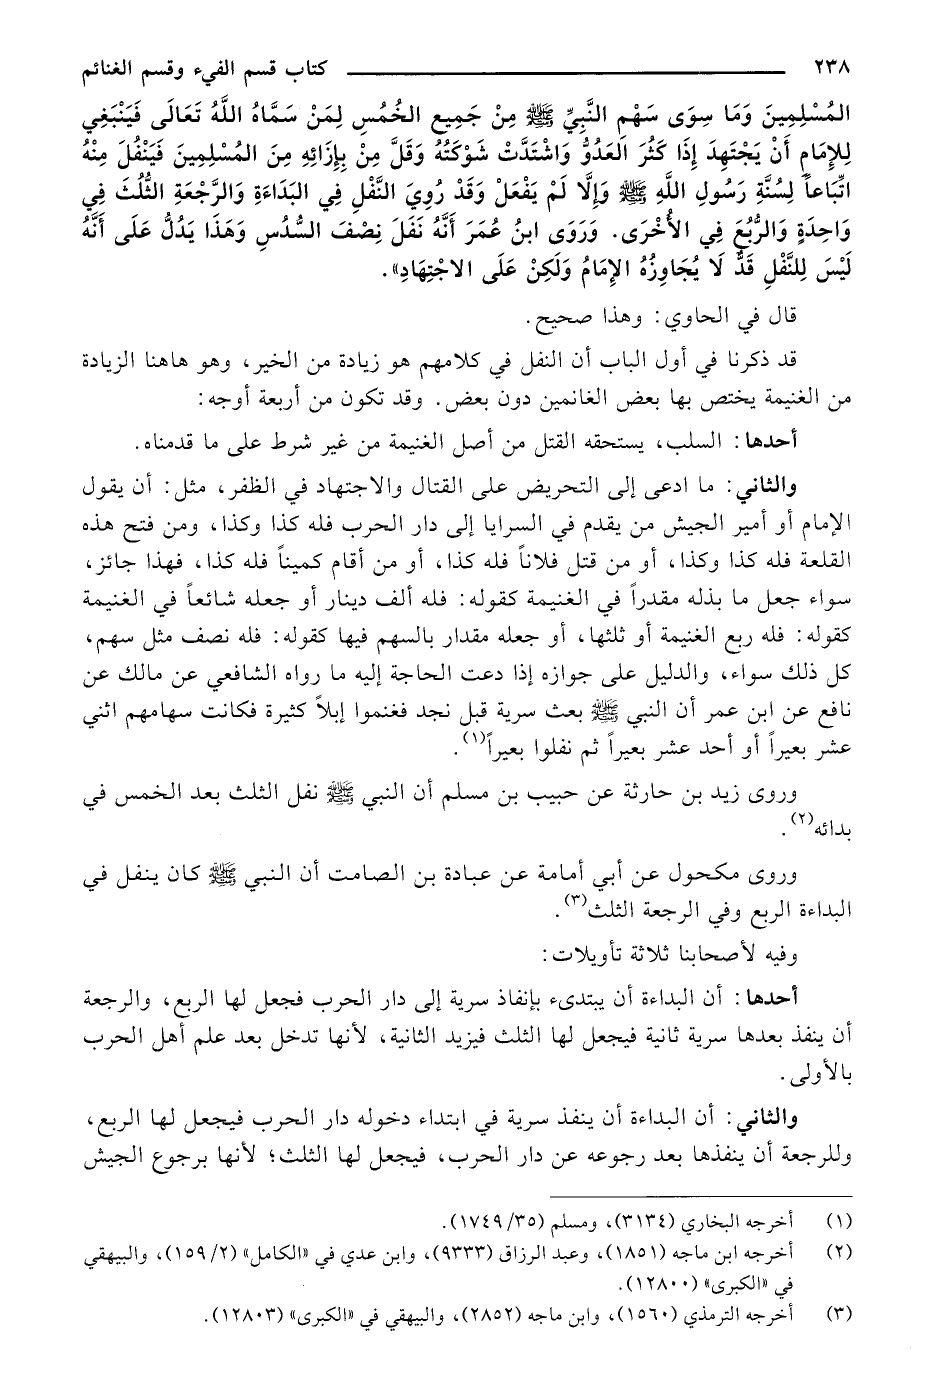 ٢٣٨ ــــــــــــــــــــــــــــــــ كتاب قسم الفيء وقسم الغنائم
المُسْلِمِينَ وَمَا سِوَى سَهْمِ النَّبِيِّ ﷺ مِنْ جَمِيعِ الخُمُسِ لِمَنْ سَمَّاهُ اللَّهُ تَعَالَى فَيَنْبَغِي
لِلإِمَامِ أَنْ يَجْتَهِدَ إِذَا كَثُرَ العَدُوُّ وَاشْتَدَّتْ شَوْكَتُهُ وَقَلَّ مِنْ بِإِزَائِهِ مِنَ المُسْلِمِينَ فَيَنْفُلَ مِنْهُ
اتِّبَاعاً لِسُنَّةِ رَسُولِ اللَّهِ ﷺ وَإِلَّا لَمْ يَفْعَلْ وَقَدْ رُوِيَ النَّفْلِ فِي البَدَاءَةِ وَالرَّجْعَةِ الثُّلُثَ فِي
وَاحِدَةٍ وَالرُّبُعَ فِي الأُخْرَى. وَرَوَى ابنُ عُمَرَ أَنَّهُ نَفَلَ نِصْفَ السُّدُسِ وَهَذَا يَدُلُّ عَلَى أَنَّهُ
لَيْسَ لِلنَّفْلِ قَدٌّ لَا يُجَاوِزُهُ الإِمَامُ وَلَكِنْ عَلَى الاجْتِهَادِ».
قال في الحاوي: وهذا صحيح.
قد ذكرنا في أول الباب أن النفل في كلامهم هو زيادة من الخير، وهو هاهنا الزيادة
من الغنيمة يختص بها بعض الغانمين دون بعض. وقد تكون من أربعة أوجه:
أحدها: السلب، يستحقه القتل من أصل الغنيمة من غير شرط على ما قدمناه.
والثاني: ما ادعى إلى التحريض على القتال والاجتهاد في الظفر، مثل: أن يقول
الإمام أو أمير الجيش من يقدم في السرايا إلى دار الحرب فله كذا وكذا، ومن فتح هذه
القلعة فله كذا وكذا، أو من قتل فلاناً فله كذا، أو من أقام كميناً فله كذا، فهذا جائز،
سواء جعل ما بذله مقدراً في الغنيمة كقوله: فله ألف دينار أو جعله شائعاً في الغنيمة
كقوله: فله ربع الغنيمة أو ثلثها، أو جعله مقدار بالسهم فيها كقوله: فله نصف مثل سهم،
كل ذلك سواء، والدليل على جوازه إذا دعت الحاجة إليه ما رواه الشافعي عن مالك عن
نافع عن ابن عمر أن النبي ﷺ بعث سرية قبل نجد فغنموا إبلاً كثيرة فكانت سهامهم اثني
عشر بعيراً أو أحد عشر بعيراً ثم نفلوا بعيراً(١).
وروى زيد بن حارثة عن حبيب بن مسلم أن النبي ﷺ نفل الثلث بعد الخمس في
بدائه(٢).
وروى مكحول عن أبي أمامة عن عبادة بن الصامت أن النبي ﷺ كان ينفل في
البداءة الربع وفي الرجعة الثلث(٣).
وفيه لأصحابنا ثلاثة تأويلات:
أحدها: أن البداءة أن يبتدىء بإنفاذ سرية إلى دار الحرب فجعل لها الربع، والرجعة
أن ينفذ بعدها سرية ثانية فيجعل لها الثلث فيزيد الثانية، لأنها تدخل بعد علم أهل الحرب
بالأولى.
والثاني: أن البداءة أن ينفذ سرية في ابتداء دخوله دار الحرب فيجعل لها الربع،
وللرجعة أن ينفذها بعد رجوعه عن دار الحرب، فيجعل لها الثلث؛ لأنها برجوع الجيش
(١) أخرجه البخاري (٣١٣٤)، ومسلم (٣٥/ ١٧٤٩).
(٢) أخرجه ابن ماجه (١٨٥١)، وعبد الرزاق (٩٣٣٣)، وابن عدي في «الكامل» (٢/ ١٥٩)، والبيهقي
في «الكبرى» (١٢٨٠٠).
(٣) أخرجه الترمذي (١٥٦٠)، وابن ماجه (٢٨٥٢)، والبيهقي في «الكبرى» (١٢٨٠٣).